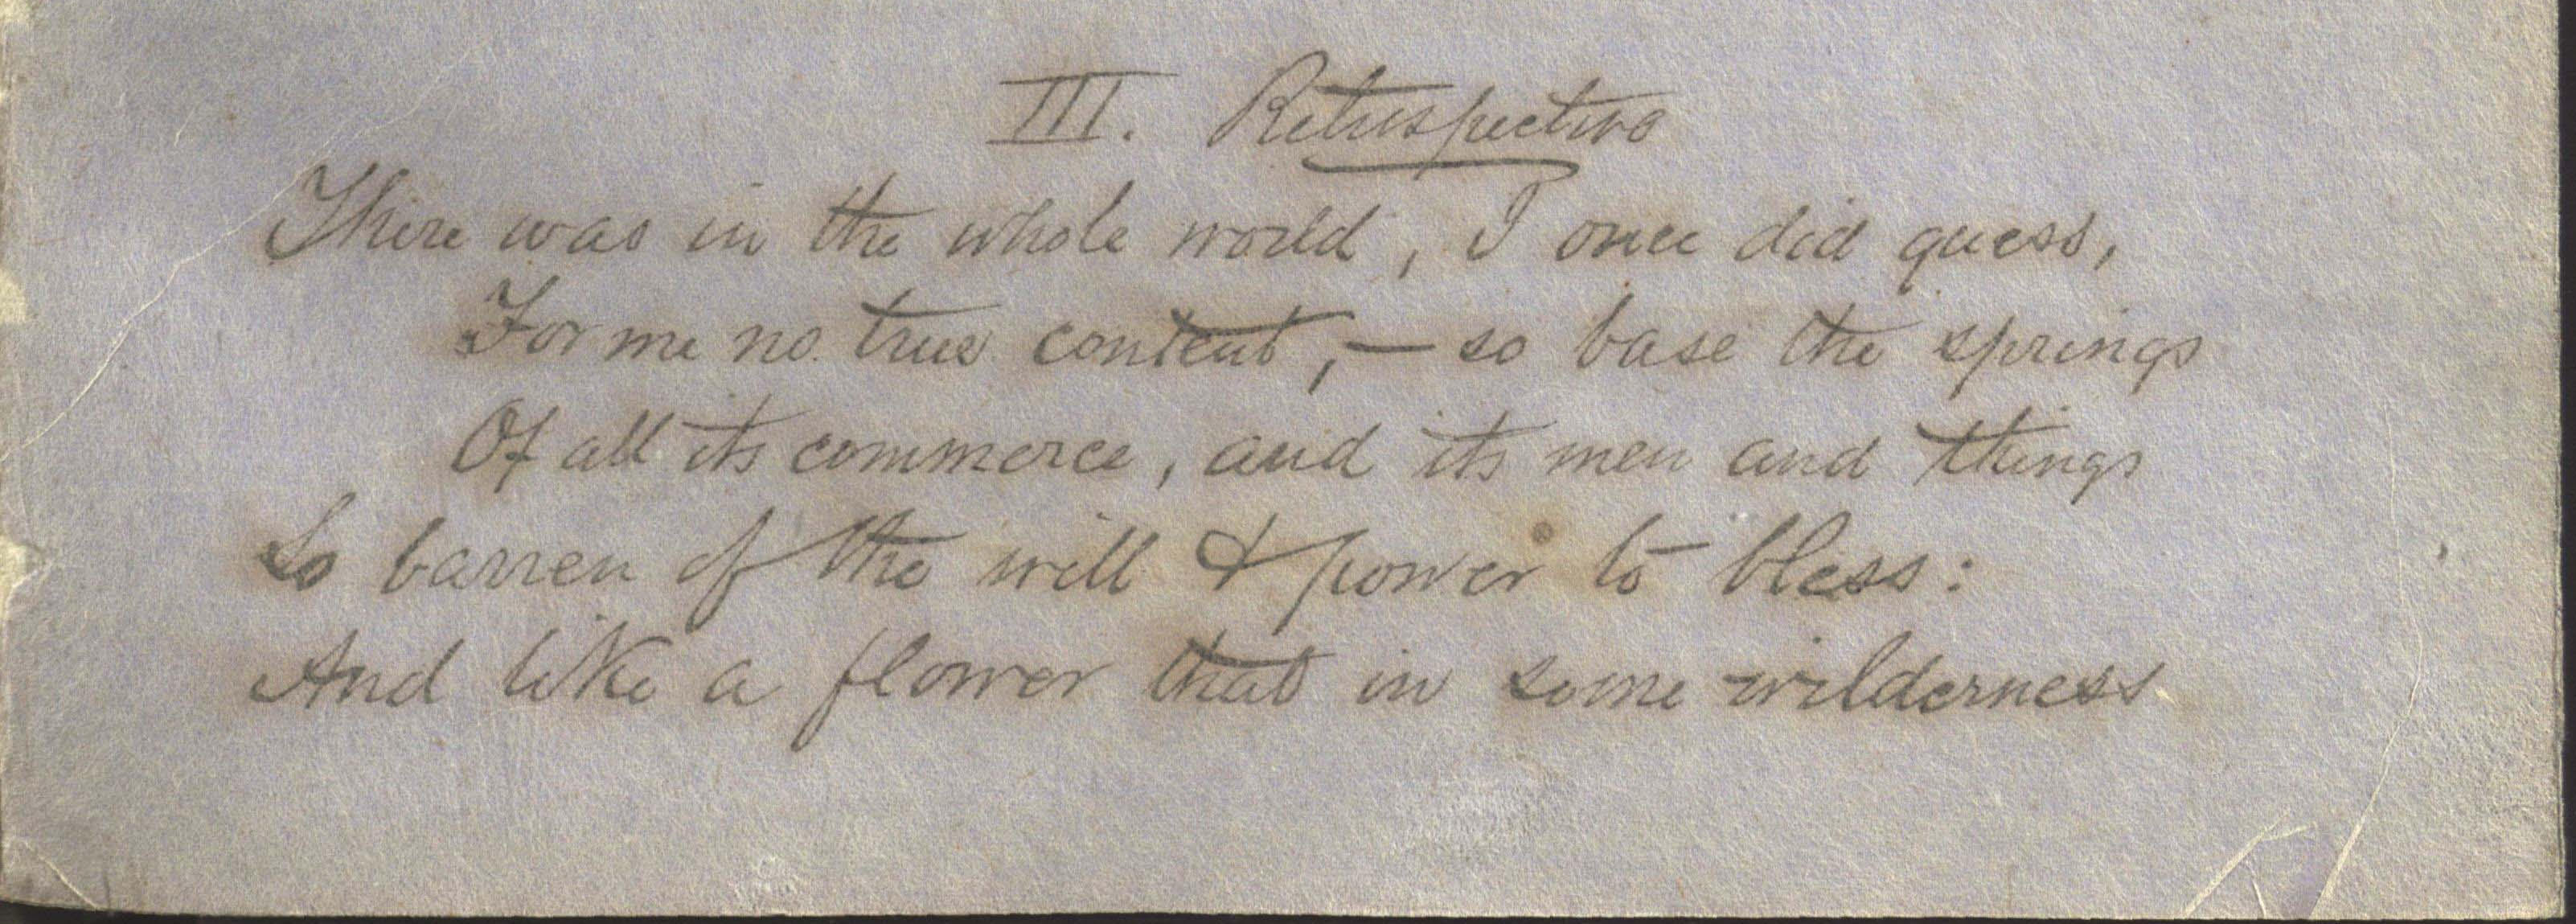 III. Retrospective
There was in the whole world, I once did guess,
For me no true content, — so base the springs
Of all its commerce, and its men and things
So barren of the will & power to bless:
And like a flower that in some wilderness